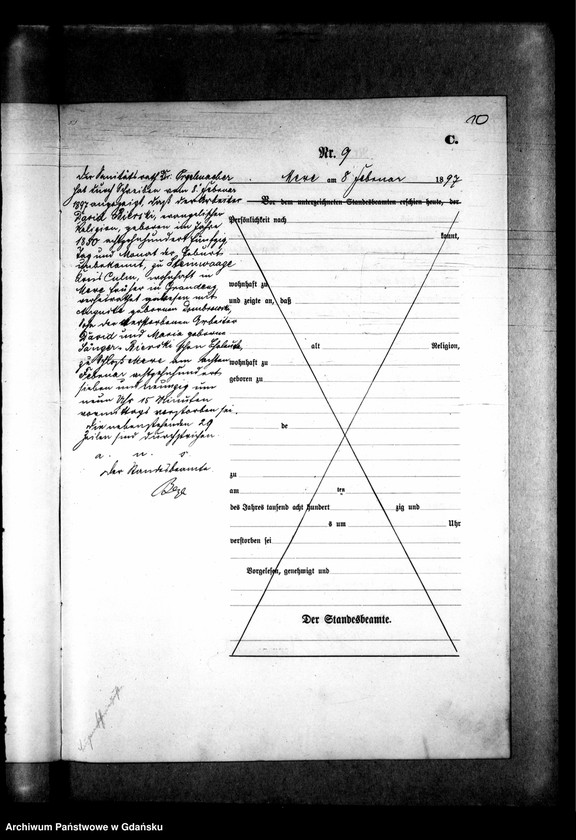 10
C.
Nr. 9
Mewe am 8 Februar 1897
Vor dem unterzeichneten Standesbeamten erschien heute, der
Persönlichkeit nach
kannt,
wohnhaft zu
und zeigte an, daß
alt Religion,
wohnhaft zu
geboren zu
de
zu
am ten
des Jahres tausend acht hundert zig und
s um Uhr
verstorben sei
Vorgelesen, genehmigt und
Der Standesbeamte.
Der Sanitätsrath Dr.
hat durch Schreiben vom 8 Februar
1897 angezeigt, daß der Arbeiter
David evangelischer
Religion, geboren im Jahre
1850 achtzehnhundert fünfzig
Tag und Monat der Geburt
unbekannt, zu Steinwaage
Kreis Culm, wohnhaft in
Mewe früher in Graudenz
verheirathet gewesen mit
Auguste geborenen
Sohn der verstorbenen Arbeiter
David und Maria geborene
Eheleute,
zu Schloß Mewe am achten
Februar achtzehnhundert
sieben und neunzig um
neun Uhr 15 Minuten
vormittags verstorben sei.
Die nebenstehenden 29
Zeilen sind durchstrichen
Der Standesbeamte
Archiwum Państwowe w Gdańsku